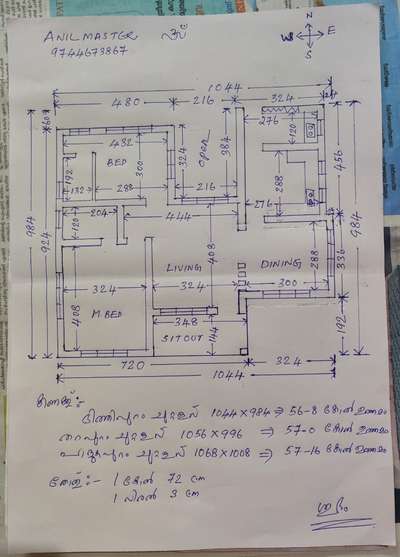 ANIL MASTER
9744673867
N
W E
S
1044
480 216 324
24
60
432
276
120
BED
300
324
open
384
456
192
132
288
216
288
984
924
204
120
444
276
984
408
288
336
LIVING
DINING
324
324
300
408
M.BED
348
144
192
SITOUT
720 324
1044
കണക്ക്:-
ഭിത്തിപ്പുറം ചുറ്റളവ് 1044x984 ⇒ 56-8 കോൽ ഉത്തമം
തറപ്പുറം ചുറ്റളവ് 1056x996 ⇒ 57-0 കോൽ ഉത്തമം
ചുറ്റളവ് 1068x1008 ⇒ 57-16 കോൽ ഉത്തമം
തോത്:- 1 കോൽ 72 cm
1 വിരൽ 3 cm
ശുഭം